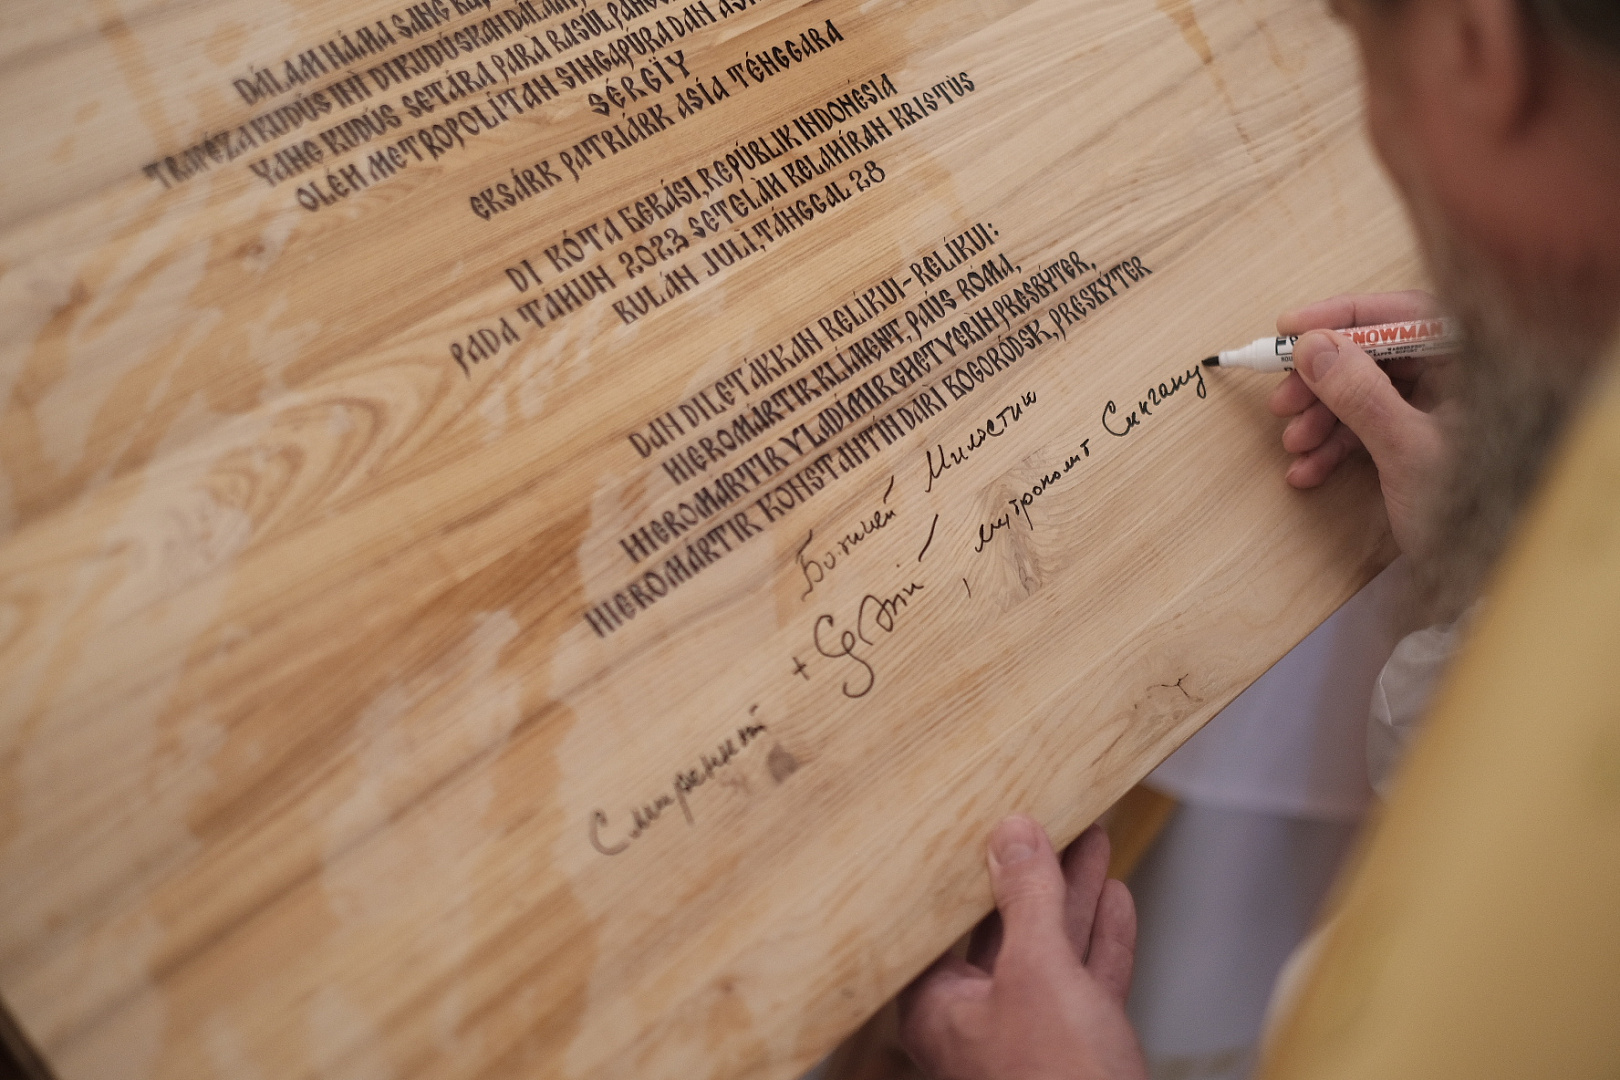 DÁLAM NÁMA SANG
TRAPÉZA KUDÚS INÍ DIKUDÚSKAN DÁLAM
YANG KUDÚS SETÁRA PARA RASUL
OLÉH METROPOLÍTAN SINGAPÚRA DAN
SÉRGÏY
EKSÁRK PATRIÁRK ASÍA TÉNGGARA
DI KÓTA BEKÁSI, REPÚBLIK INDONÉSIA
PADA TAHUN 2023 SETELÀH KELAHÍRAN KRISTUS
BULÁN JULI, TÁNGGAL 28
DAN DILETÁKKAN RELÍKUI-RELÍKUI:
HIEROMÁRTIR KLÍMENT, PÁUS ROMA,
HIEROMARTIR VLADÍMIR CHETVERIN, PRESBÝTER,
HIEROMÁRTIR KONSTANTÍN DARÍ BOGORÓDSK, PRESBÝTER
Божией Милостию
Смиренный + Сергий, митрополит Сингапу
SNOWMAN